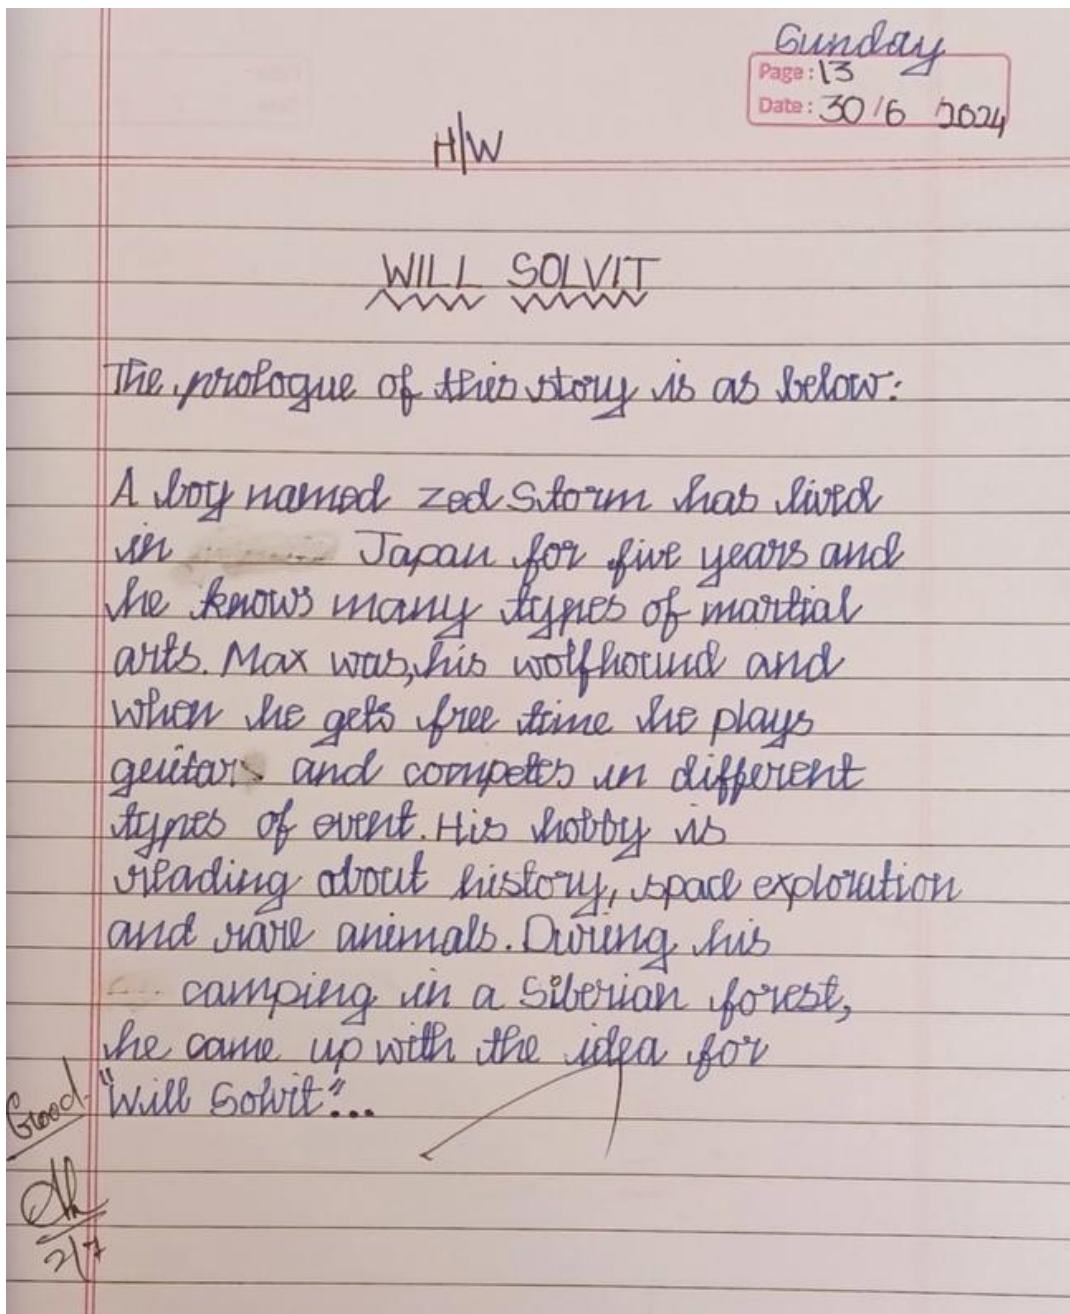 Sunday
Page: 13
Date: 30/6/2024
H/W
WILL SOLVIT
The prologue of this story is as below:
A boy named Zed Storm has lived
in Japan for five years and
he knows many types of martial
arts. Max was, his wolfhound and
when he gets free time he plays
geuitar and competes in different
types of event. His hobby is
reading about history, space exploration
and rare animals. During his
camping in a Siberian forest,
he came up with the idea for
"Will Solvit"...
Good
2/7